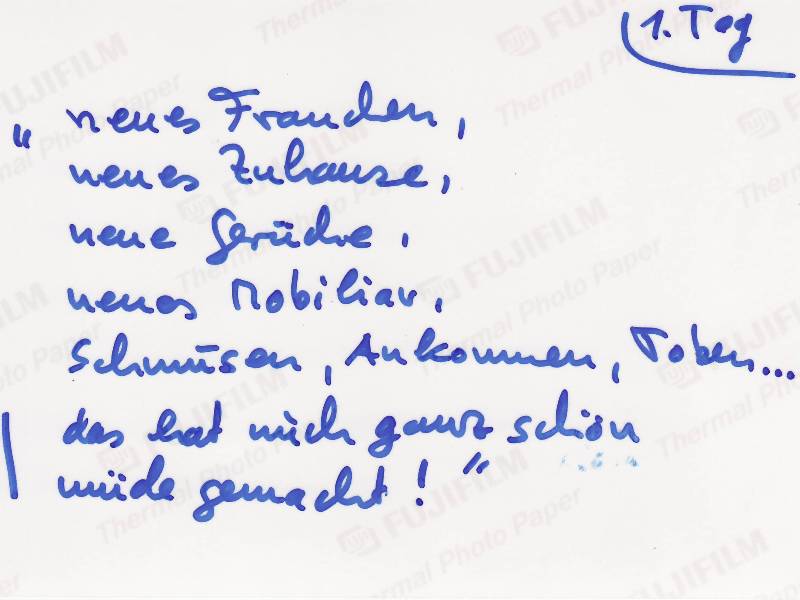 1. Tag
„ neues Frauchen,
neues Zuhause,
neue Gerüche,
neues Mobiliar,
Schmusen, Ankommen, Toben...
das hat mich ganz schön
müde gemacht! “
FUJIFILM
Thermal Photo Paper